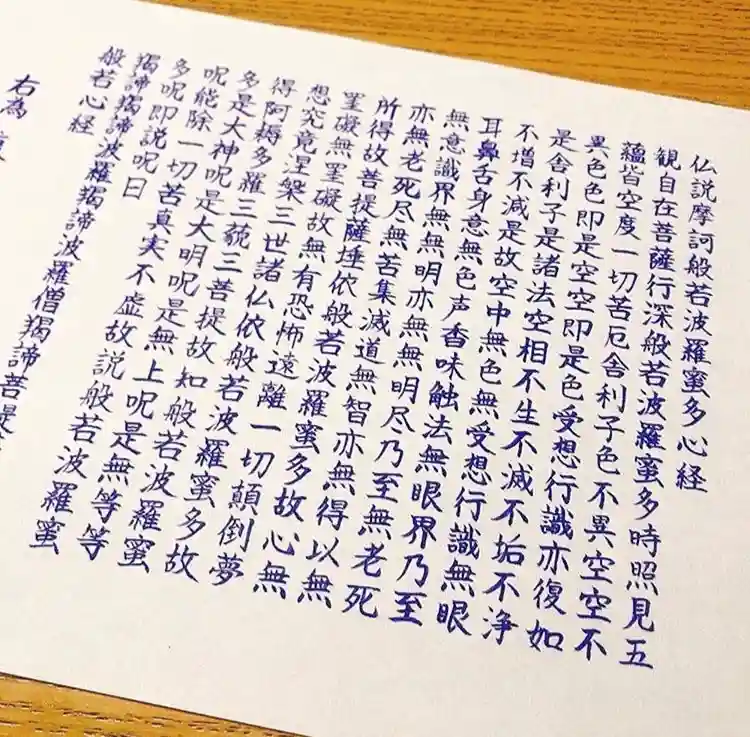 仏説摩訶般若波羅蜜多心経
観自在菩薩行深般若波羅蜜多時照見五
蘊皆空度一切苦厄舎利子色不異空空不
異色色即是空空即是色受想行識亦復如
是舎利子是諸法空相不生不滅不垢不浄
不増不減是故空中無色無受想行識無眼
耳鼻舌身意無色声香味触法無眼界乃至
無意識界無無明亦無無明尽乃至無老死
亦無老死尽無苦集滅道無智亦無得以無
所得故菩提薩埵依般若波羅蜜多故心無
罣礙無罣礙故無有恐怖遠離一切顛倒夢
想究竟涅槃三世諸仏依般若波羅蜜多故
得阿耨多羅三藐三菩提故知般若波羅蜜
多是大神呪是大明呪是無上呪是無等等
呪能除一切苦真実不虚故説般若波羅蜜
多呪即説呪曰
羯諦羯諦波羅羯諦波羅僧羯諦菩提
般若心経
右為